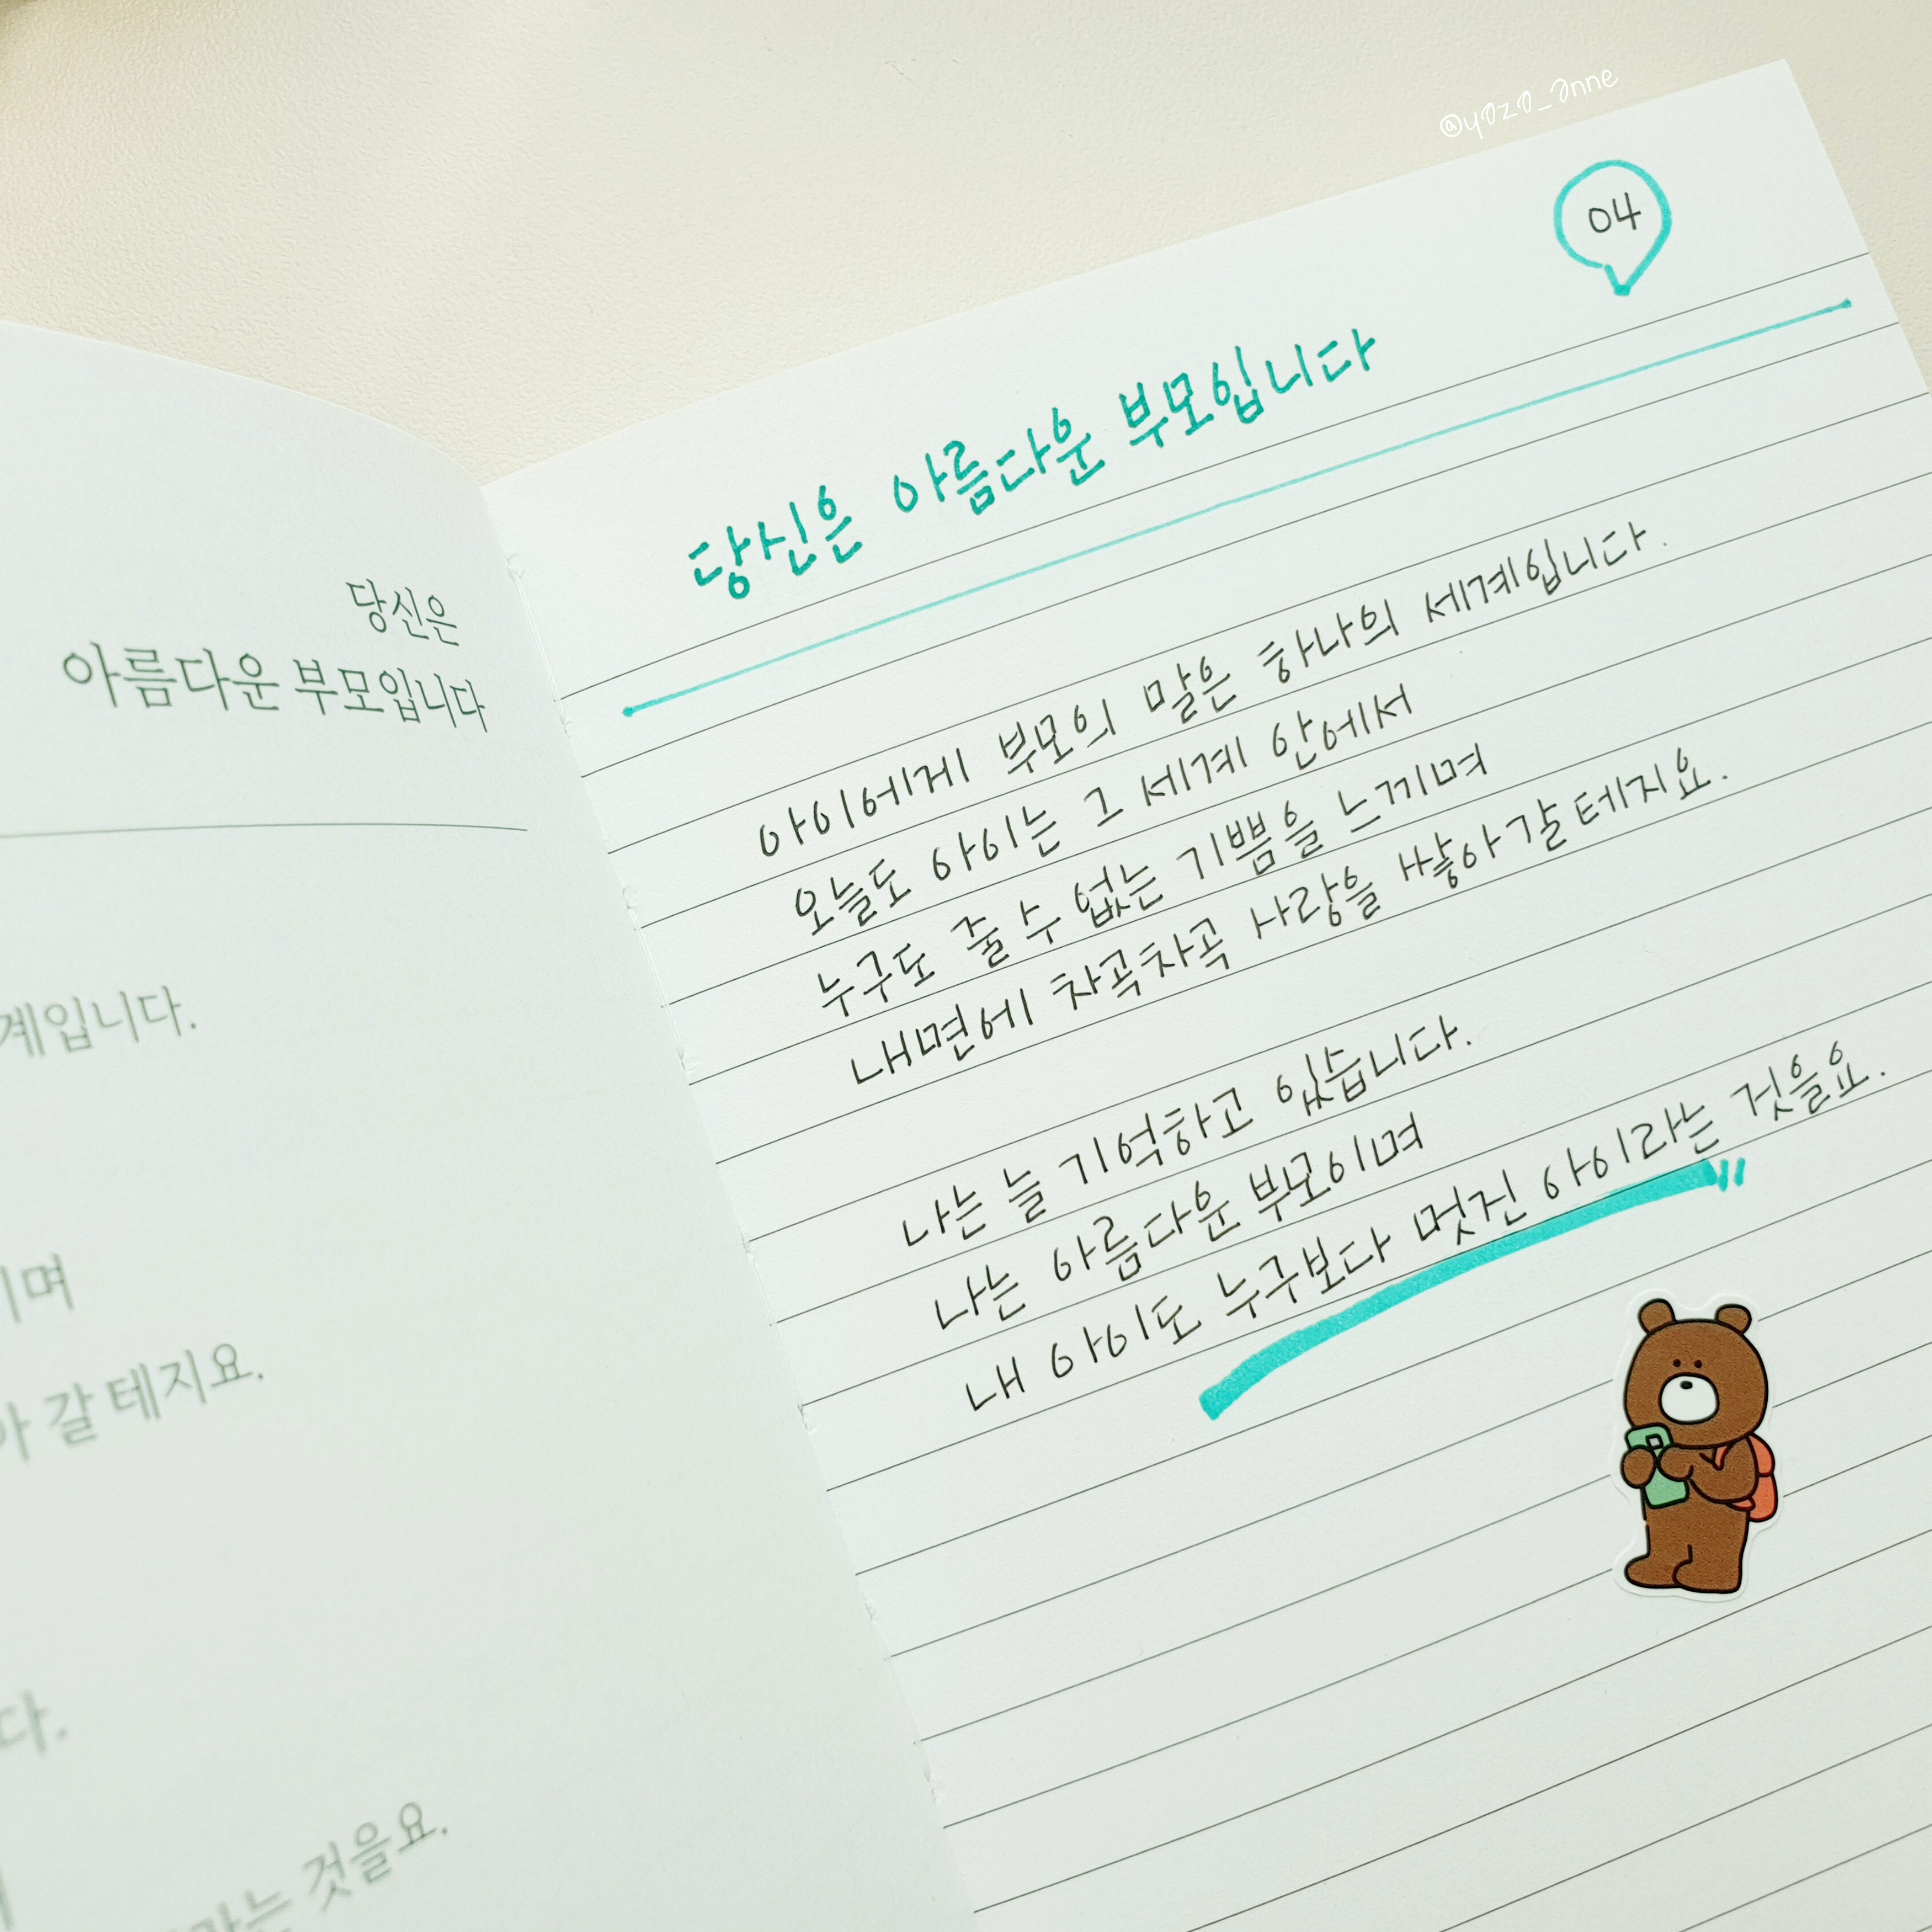 당신은
아름다운 부모입니다
계입니다.
며
갈 테지요.
다.
라는 것을요.
@yozo_anne
04
당신은 아름다운 부모입니다
아이에게 부모의 말은 하나의 세계입니다.
오늘도 아이는 그 세계 안에서
누구도 줄 수 없는 기쁨을 느끼며
내면에 차곡차곡 사랑을 쌓아갈 테지요.
나는 늘 기억하고 있습니다.
나는 아름다운 부모이며
내 아이도 누구보다 멋진 아이라는 것을요.